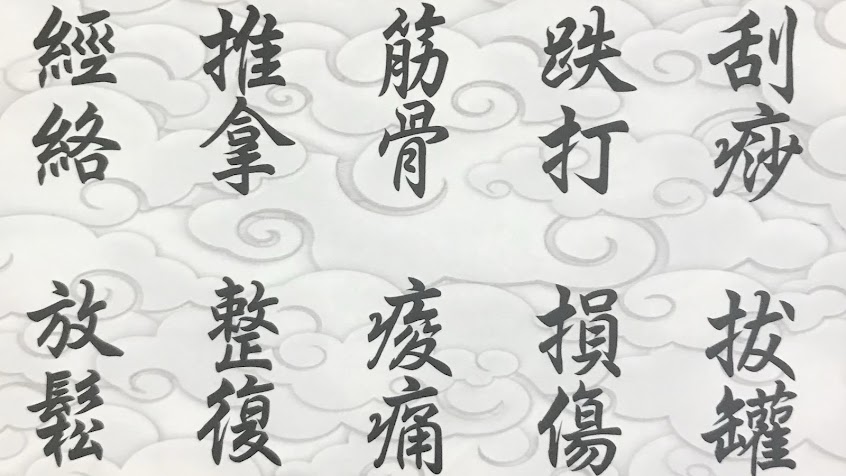 刮痧拔罐
跌打損傷
筋骨痠痛
推拿整復
經絡放鬆